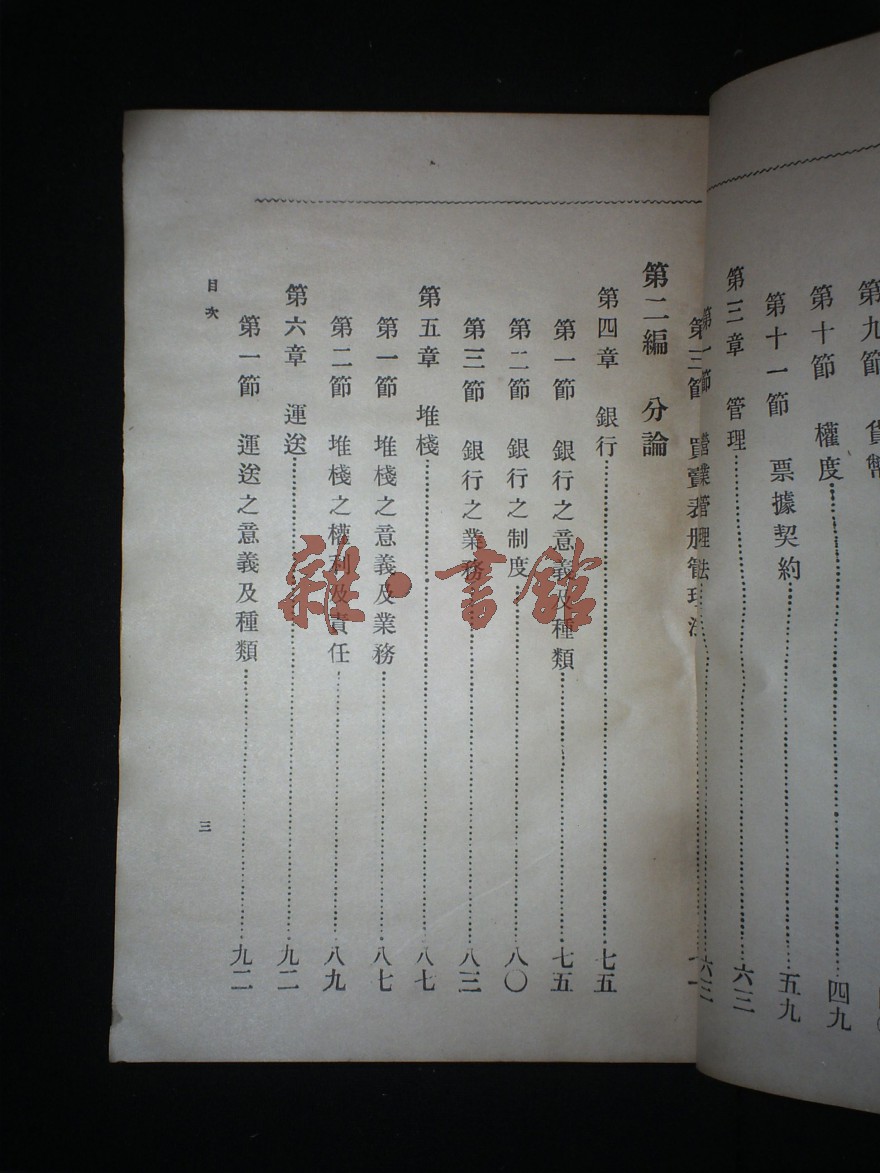 第九節 貨幣
第十節 權度 四九
第十一節 票據契約 五九
第三章 管理 六三
第一節 營業管理法 六三
第三節 買賣表册管理法
第二編 分論
第四章 銀行 七五
第一節 銀行之意義及種類 七五
第二節 銀行之制度 八〇
第三節 銀行之業務 八三
第五章 堆棧 八七
第一節 堆棧之意義及業務 八七
第二節 堆棧之權利及責任 八九
第六章 運送 九二
第一節 運送之意義及種類 九二
目次
三
雜·書館